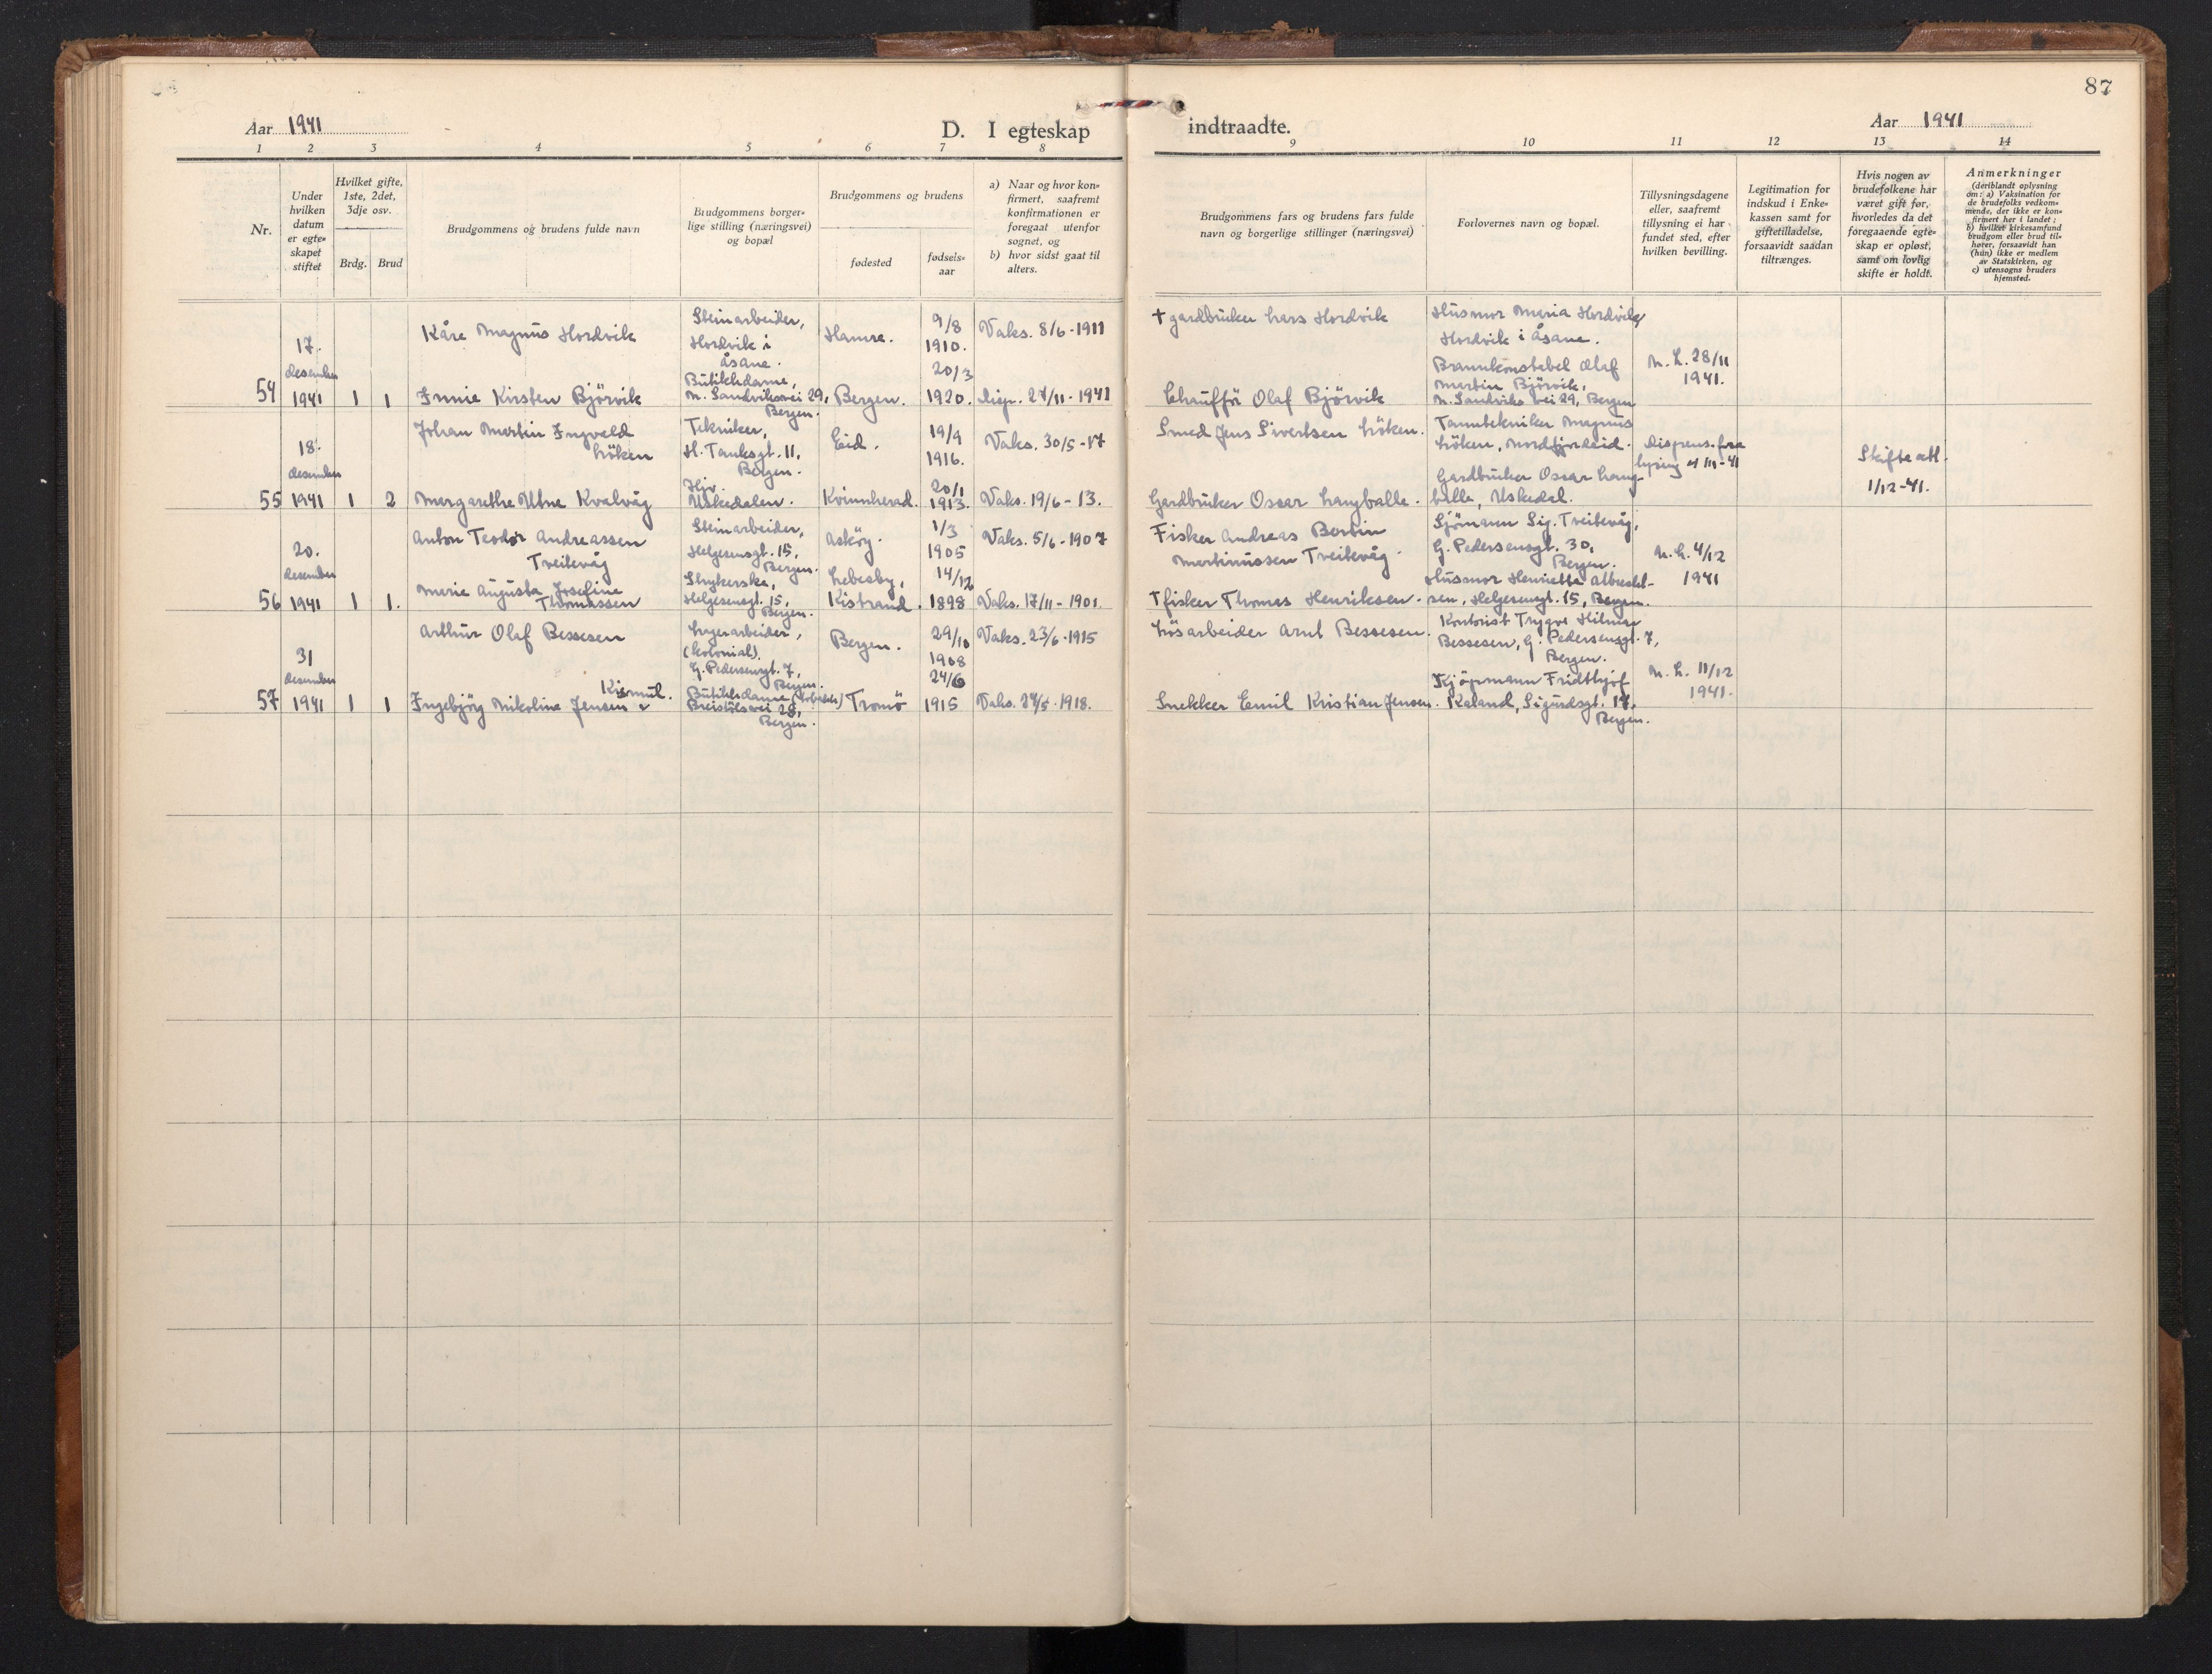 87
Aar 1941
D. I egteskap
indtraadte.
Aar 1941
1 2 3 4 5 6 7 8 9 10 11 12 13 14
Nr.
Under hvilken datum er egte-skapet stiftet
Hvilket gifte, 1ste, 2det, 3dje osv.
Brdg.
Brud
Brudgommens og brudens fulde navn
Brudgommens borger-lige stilling (næringsvei) og bopæl
Brudgommens og brudens
fødested
fødsels-aar
a) Naar og hvor kon-firmert, saafremt konfirmationen er foregaat utenfor sognet, og
b) hvor sidst gaat til alters.
Brudgommens fars og brudens fars fulde navn og borgerlige stillinger (næringsvei)
Forlovernes navn og bopæl.
Tillysningsdagene eller, saafremt tillysning ei har fundet sted, efter hvilken bevilling.
Legitimation for indskud i Enke-kassen samt for giftetilladelse, forsaavidt saadan tiltrænges.
Hvis nogen av brudefolkene har været gift før, hvorledes da det foregaaende egte-skap er opløst, samt om lovlig skifte er holdt.
Anmerkninger
(deriblandt oplysning om: a) Vaksination for de brudefolks vedkom-mende, der ikke er kon-firmert her i landet; b) hvilket kirkesamfund brudgom eller brud til-hører, forsaavidt han (hun) ikke er medlem av Statskirken, og c) utensogns bruders hjemsted.
54
17.
desember
1941
1
1
Kåre Magnus Hordvik
Steinarbeider,
Hordvik i
åsane.
Hamre.
9/8
1910.
Vaks. 8/6-1911
† gardbruker Lars Hordvik
Husmor Maria Hordvik,
Hordvik i åsane.
Kirsten Björvik
Butikkdame,
n. Sandviksvei 29,
Bergen.
Bergen.
20/3
1920.
disp. 27/11-1941
Chaufför Olaf Björvik
Brannkonstabel Olaf
Martin Björvik,
n. Sandviks vei 29, Bergen
M. L. 28/11
1941.
55
18.
desember
1941
1
2
Johan Martin Ingvald
Löken
Tekniker,
H. Tanksgt. 11,
Bergen.
Eid.
19/9
1916.
Vaks. 30/5-17
Smed Jens Sivertsen Löken.
Tanntekniker Magnus
Löken, Nordfjordeid.
Margarethe Utne Kvalvåg
Hjv.
Uskedalen.
Kvinnherad.
20/1
1913.
Vaks. 19/6-13.
Gardbruker Oscar Langballe.
Gardbruker Oscar Lang-
balle, Uskedal.
Dispens. fra
lysing
Skifteatt.
1/12-41.
56
20.
desember
1941
1
1.
Anton Teodor Andreassen
Treitevåg
Steinarbeider,
Helgesensgt. 15,
Bergen.
Asköy.
1/3
1905
Vaks. 5/6-1907
Fisker Andreas Bertin
Martinussen Treitevåg.
Sjömann Sig. Treitevåg,
G. Pedersensgt. 30,
Bergen.
Marie Augusta Josefine
Thomassen
Strykerske,
Helgesensgt. 15,
Bergen.
Lebesby,
Kistrand.
14/12
1898
Vaks. 17/11-1901.
† fisker Thomas Henriksen.
Husmor Henriette Albrekt-
sen, Helgesensgt. 15, Bergen.
M. L. 4/12
1941
57
31
desember
1941
1
1
Arthur Olaf Bessesen
Lagerarbeider,
(kolonial).
G. Pedersensgt. 7,
Bergen.
Bergen.
29/10
1908
Vaks. 23/6-1915
Lösarbeider Arnt Bessesen.
Kontorist Trygve Hilmar
Bessesen, G. Pedersensgt. 7,
Bergen.
Kismul.
Ingebjörg Nikoline Jensen
Butikkdame
Breistölsvei 28,
Bergen.
Tromö
24/6
1915
Vaks. 24/5-1918.
Snekker Emil Kristian Jensen.
Kjöpmann Fridthjof
Kaland, Sigurdsgt. 17.
Bergen.
M. L. 11/12
1941.